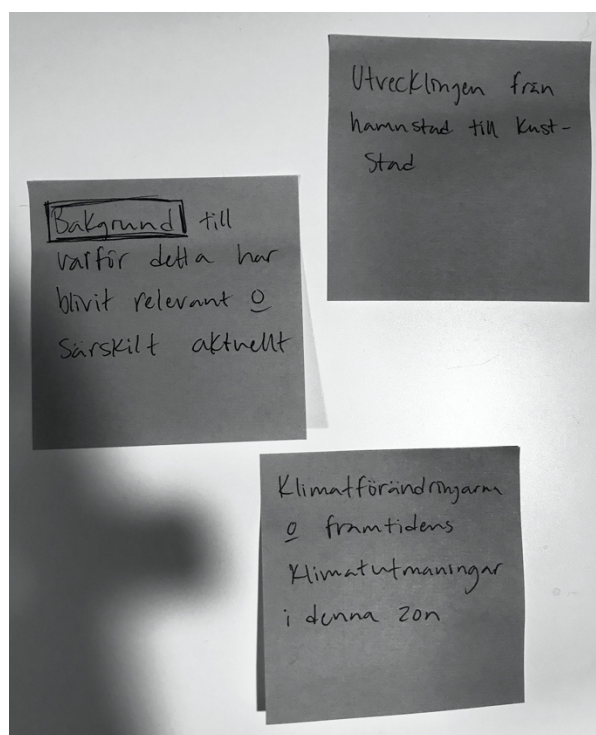 Utvecklingen från
hamnstad till kust-
stad
Bakgrund till
varför detta har
blivit relevant o
särskilt aktuellt
Klimatförändringarna
o framtidens
klimatutmaningar
i denna zon